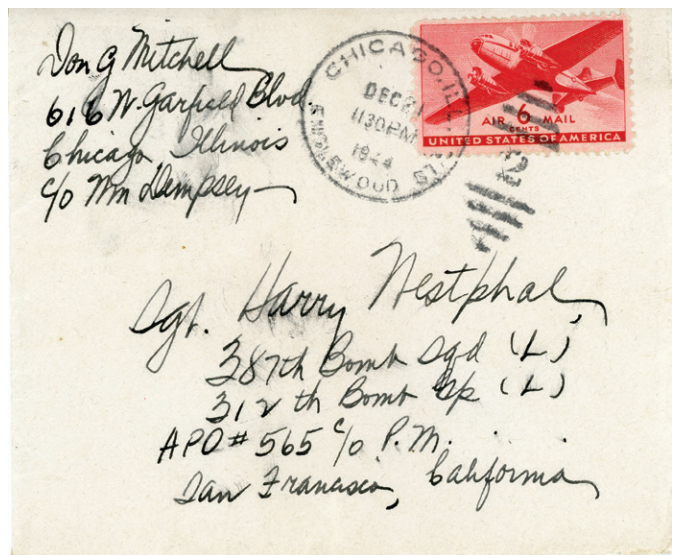 Don G Mitchell
616 W. Garfield Blvd
Chicago, Illinois
c/o Wm Dempsey
CHICAGO, ILL.
DEC 21
1130 PM
1944
ENGLEWOOD STA.
2
AIR 6 MAIL
CENTS
UNITED STATES OF AMERICA
Sgt. Harry Westphal,
387th Bomb Sqd (L)
312th Bomb Gp (L)
APO # 565 c/o P.M.
San Francisco, California